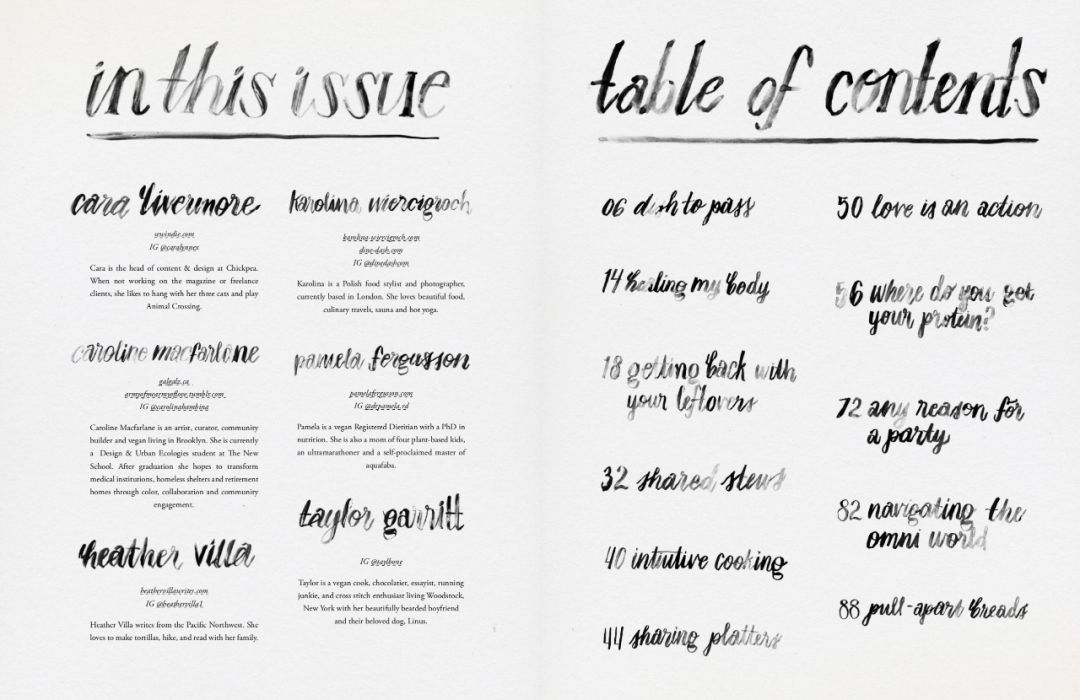 in this issue
cara livermore
IG @caralyonex
Cara is the head of content & design at Chickpea.
When not working on the magazine or freelance
clients, she likes to hang with her three cats and play
Animal Crossing.
caroline macfarlane
galgalz.ca
IG @carolinahambina
Caroline Macfarlane is an artist, curator, community
builder and vegan living in Brooklyn. She is currently
a Design & Urban Ecologies student at The New
School. After graduation she hopes to transform
medical institutions, homeless shelters and retirement
homes through color, collaboration and community
engagement.
heather villa
heathervillawrites.com
IG @heathervilla1
Heather Villa writes from the Pacific Northwest. She
loves to make tortillas, hike, and read with her family.
karolina wiercigroch
karolina-wiercigroch.com
dine-dash.com
IG @dinedashcom
Karolina is a Polish food stylist and photographer,
currently based in London. She loves beautiful food,
culinary travels, sauna and hot yoga.
pamela fergusson
pamelafergusson.com
IG @drpamela.rd
Pamela is a vegan Registered Dietitian with a PhD in
nutrition. She is also a mom of four plant-based kids,
an ultramarathoner and a self-proclaimed master of
aquafaba.
taylor garritt
IG
Taylor is a vegan cook, chocolatier, essayist, running
junkie, and cross stitch enthusiast living Woodstock,
New York with her beautifully bearded boyfriend
and their beloved dog, Linus.
table of contents
06 dish to pass
14 healing my body
18 getting back with
your leftovers
32 shared stews
40 intuitive cooking
44 sharing platters
50 love is an action
56 where do you get
your protein?
72 any reason for
a party
82 navigating the
omni world
88 pull-apart breads